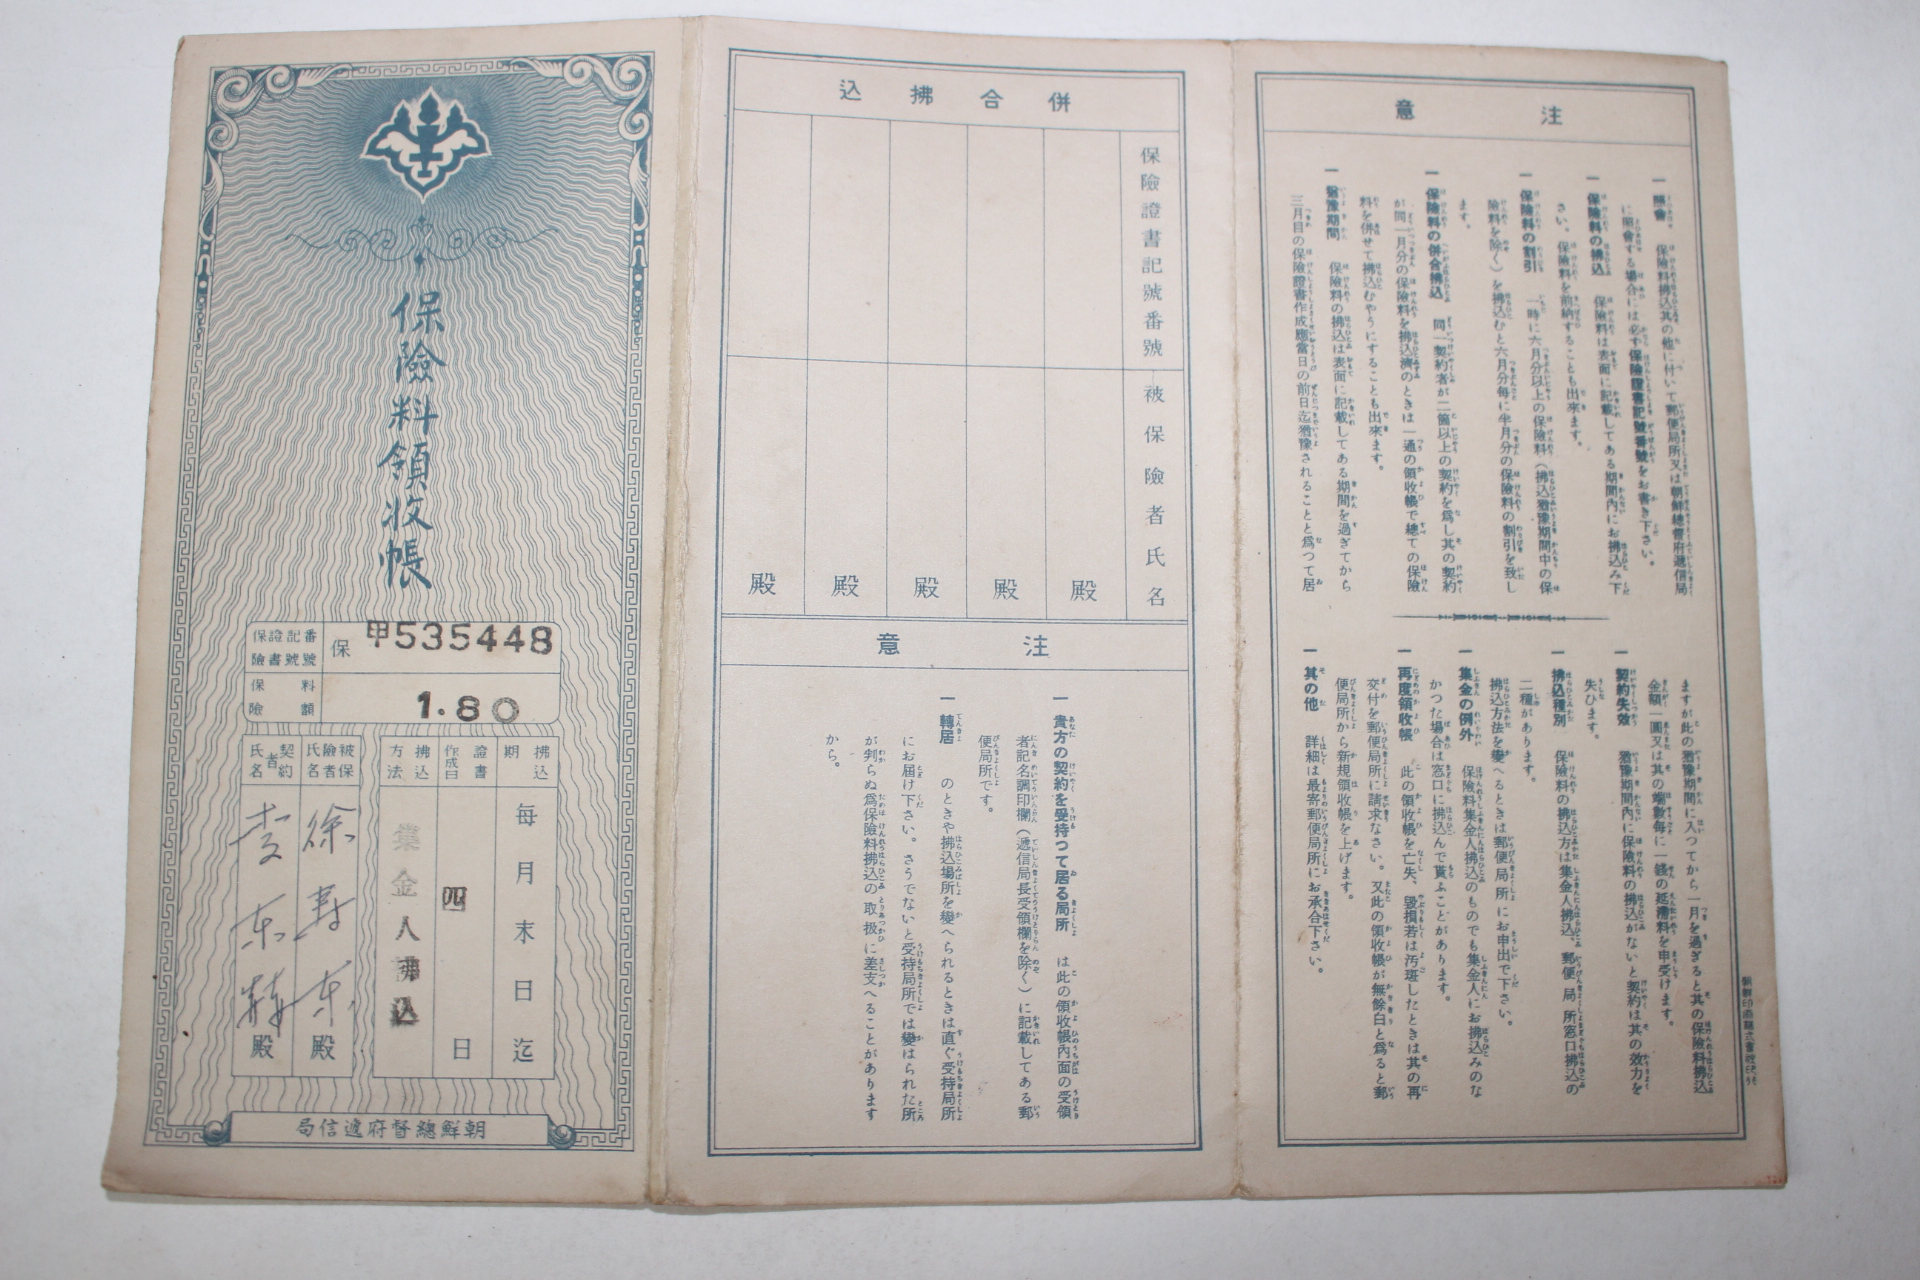 保險料領收帳
保險證書記號番號
保
甲535448
保險料額
1.80
拂込期
每月末日迄
證書作成日
四日
拂込方法
集金人拂込
被保險者氏名
徐壽東殿
契約者氏名
李東赫殿
朝鮮總督府遞信局
併合拂込
保險證書記號番號
被保險者氏名
殿
殿
殿
殿
殿
注意
一 貴方の契約を受持つて居る局所 は此の領收帳內面の受領
者記名調印欄（遞信局長受領欄を除く）に記載してある郵
便局所です。
一 轉居 のときや拂込場所を變へられるときは直ぐ受持局所
にお届け下さい。さうでないと受持局所では變はられた所
が判らぬ爲保險料拂込の取扱に差支へることがあります
から。
注意
一 照會 保險料拂込其の他に付いて郵便局所又は朝鮮總督府遞信局
に照會する場合には必ず保險證書記號番號をお書き下さい。
一 保險料の拂込 保險料は表面に記載してある期間內にお拂込み下
さい、保險料を前納することも出來ます。
一 保險料の割引 一時に六月分以上の保險料（拂込猶豫期間中の保
險料を除く）を拂込むと六月分每に半月分の保險料の割引を致し
ます。
一 保險料の併合拂込 同一契約者が二箇以上の契約を爲し其の契約
が同一月分の保險料を拂込濟のときは一通の領收帳で總ての保險
料を併せて拂込むやうにすることも出來ます。
一 猶豫期間 保險料の拂込は表面に記載してある期間を過ぎてから
三月目の保險證書作成應當日の前日迄猶豫されることと爲つて居
ますが此の猶豫期間に入つてから一月を過ぎると其の保險料拂込
金額一圓又は其の端數每に一錢の延滯料を申受けます。
一 契約失效 猶豫期間內に保險料の拂込がないと契約は其の效力を
失ひます。
一 拂込種別 保險料の拂込方は集金人拂込、郵便局所窓口拂込の
二種があります。
拂込方法を變へるときは郵便局所にお申出で下さい。
一 集金の例外 保險料集金人拂込のものでも集金人にお拂込みのな
かつた場合は窓口に拂込んで貰ふことがあります。
一 再度領收帳 此の領收帳を亡失、毀損若は汚斑したときは其の再
交付を郵便局所に請求なさい。又此の領收帳が無餘白と爲ると郵
便局所から新規領收帳を上げます。
一 其の他 詳細は最寄郵便局所にお承合下さい。